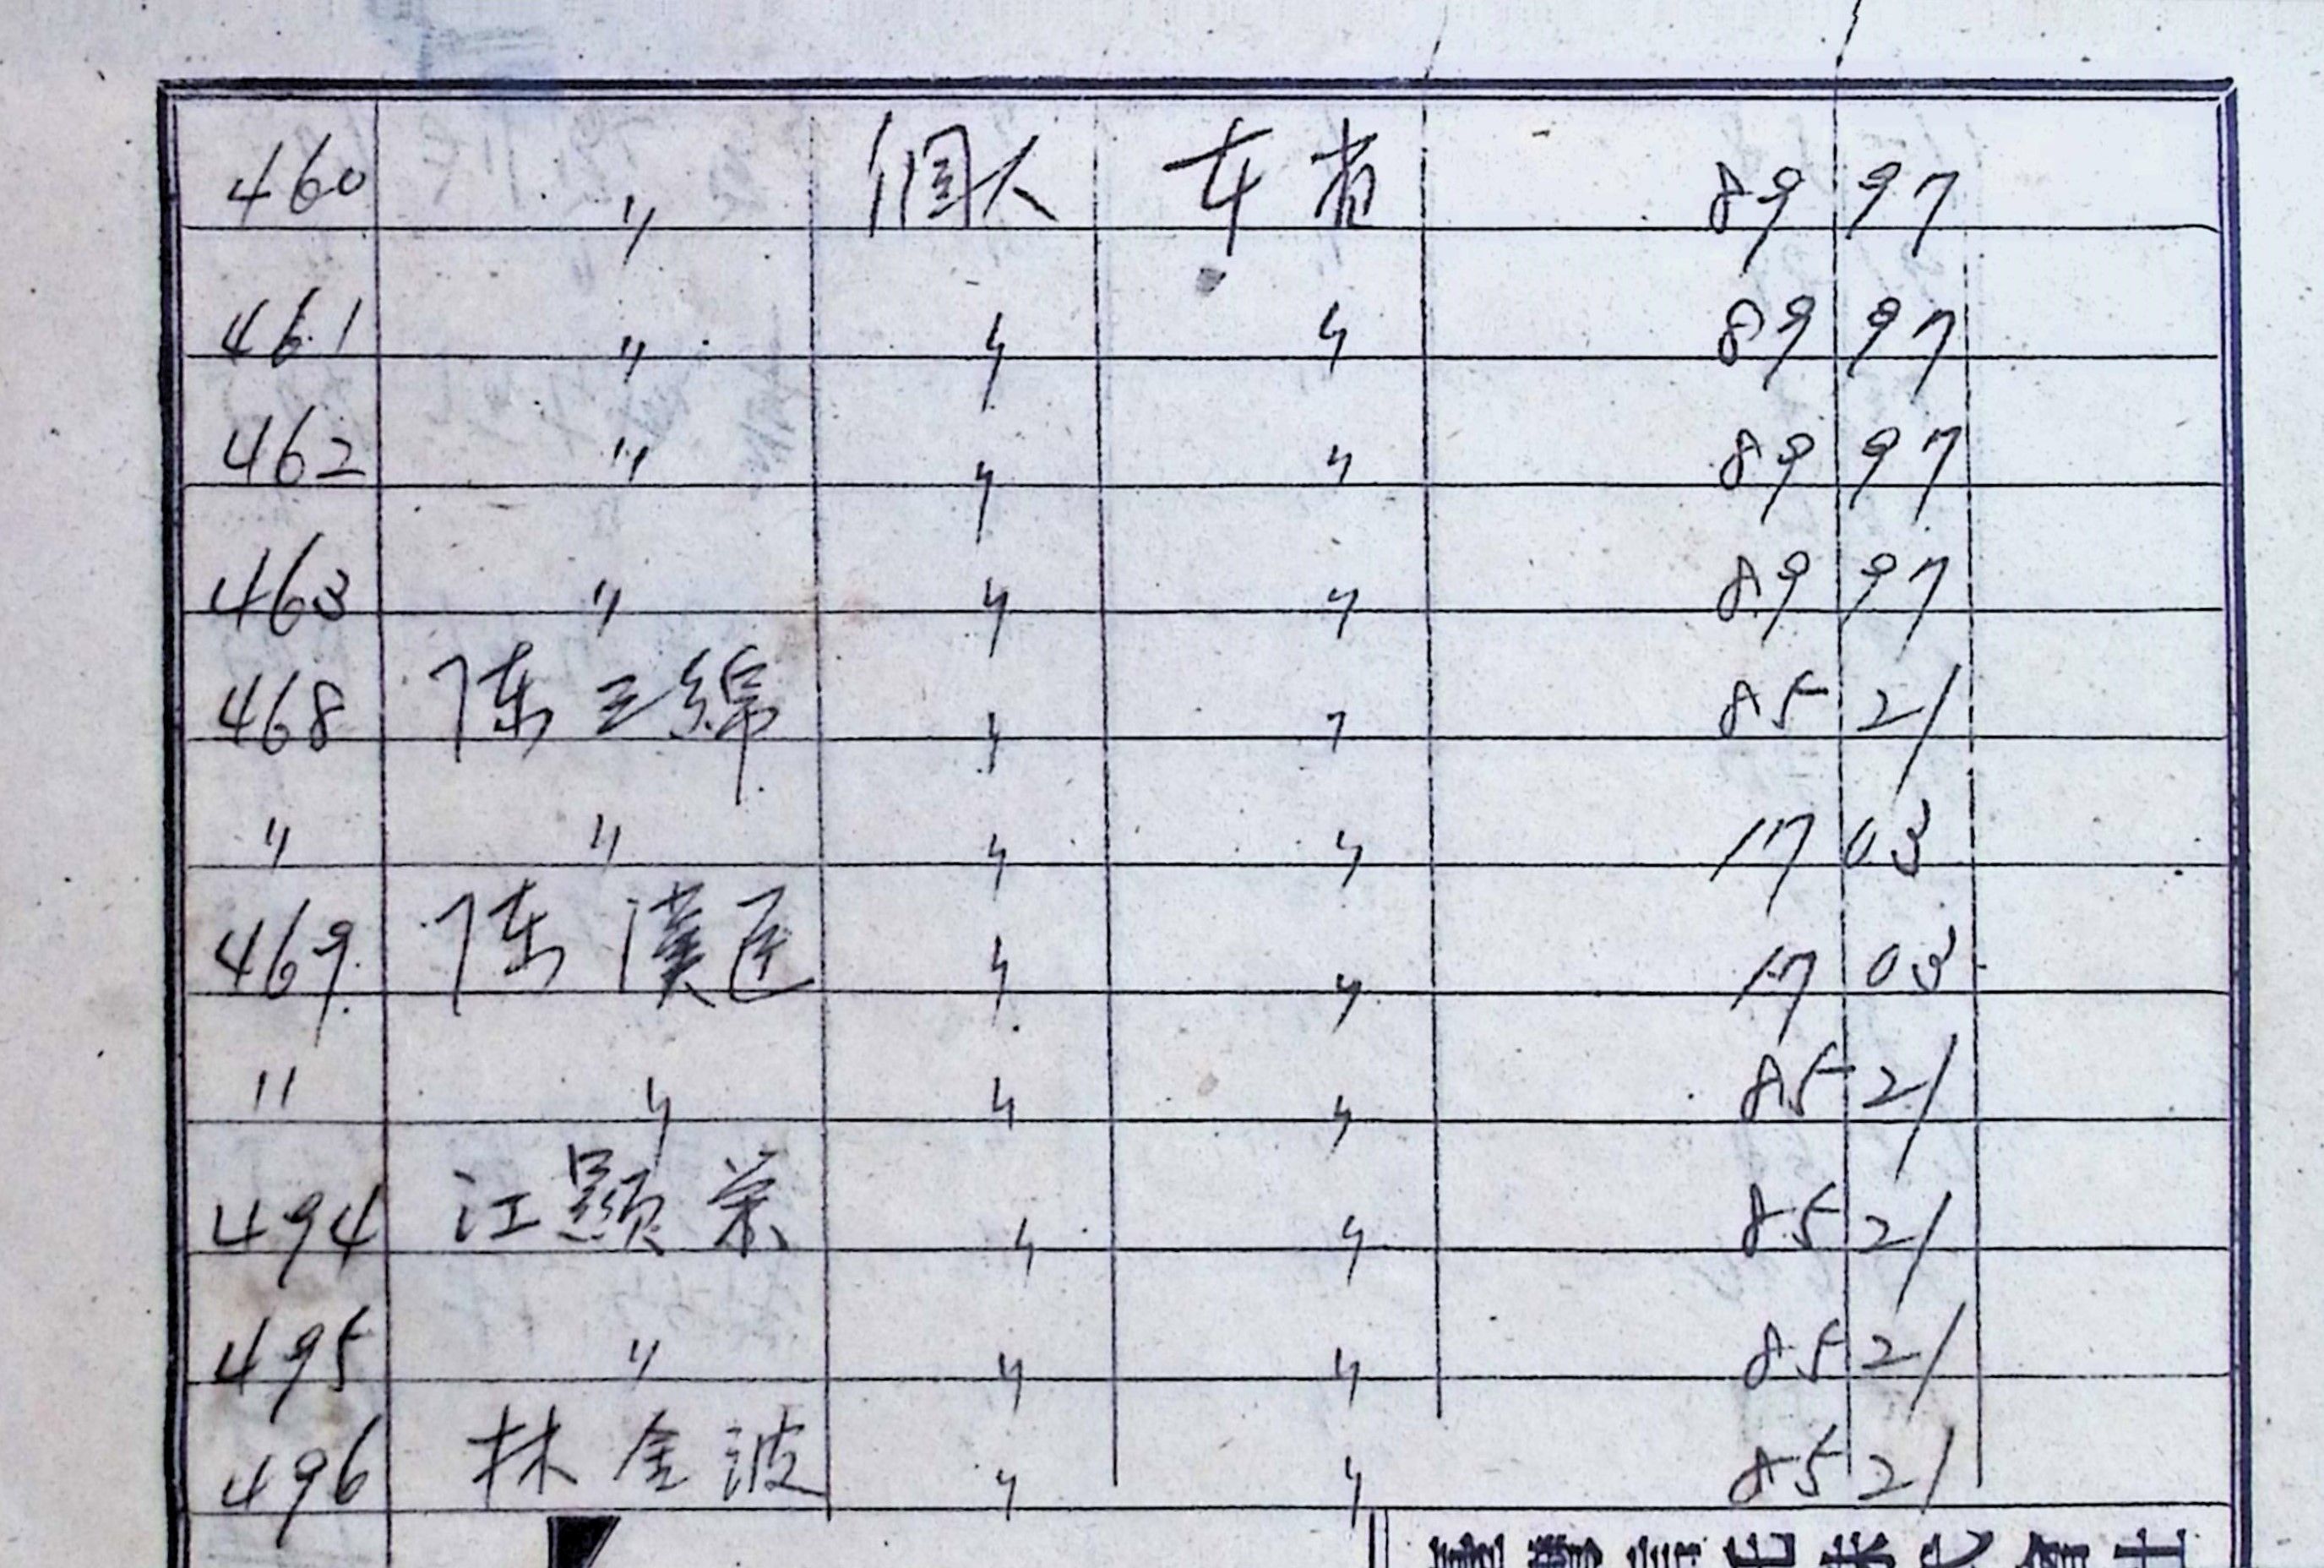 460 〃 個人 本省 89 97
461 〃 〃 〃 89 97
462 〃 〃 〃 89 97
463 〃 〃 〃 89 97
468 陳三綿 〃 〃 85 21
〃 〃 〃 〃 17 03
469 陳漢 〃 〃 17 03
〃 〃 〃 〃 85 21
494 江顕栄 〃 〃 85 21
495 〃 〃 〃 85 21
496 林金波 〃 〃 85 21